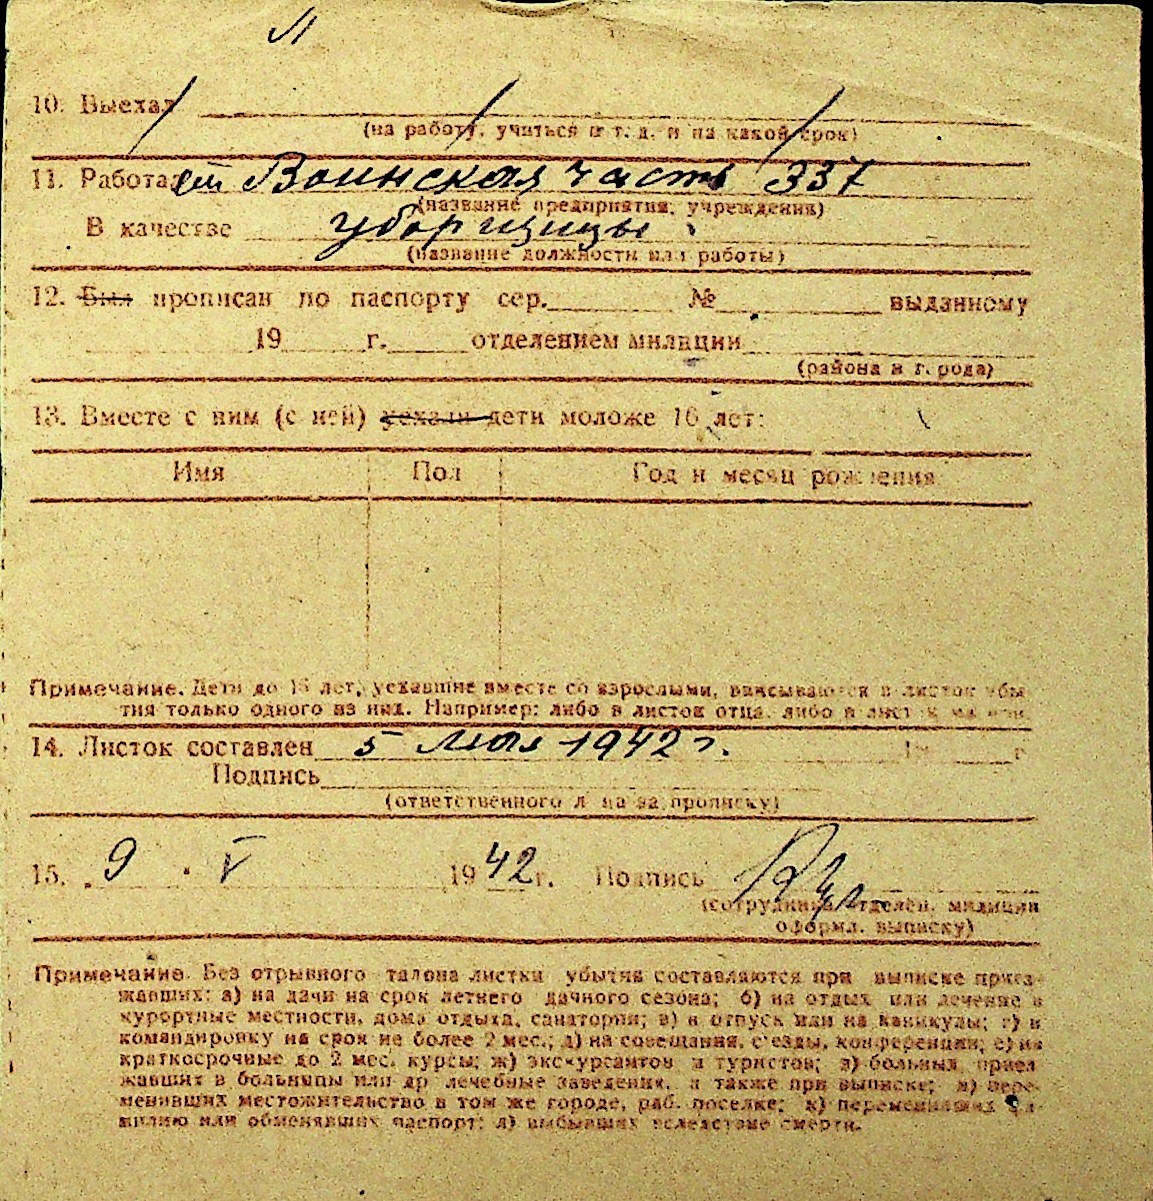 10. Выехал
(на работу, учиться и т. д. и на какой срок)
11. Работает Воинская часть 337
(название предприятия, учреждения)
В качестве уборщицы.
(название должности или работы)
12. Был прописан по паспорту сер. № выданному
19 г. отделением милиции
(района и города)
13. Вместе с ним (с ней) уехали дети моложе 16 лет:
Имя Пол Год и месяц рождения
Примечание. Дети до 16 лет, уехавшие вместе со взрослыми, вписываются в листок убы
тия только одного из них. Например: либо в листок отца, либо в листок матери.
14. Листок составлен 5 мая 1942 г. г
Подпись
(ответственного лица за прописку)
15. 9 V 1942 г. Подпись
(сотрудника отделен. милиции
оформл. выписку)
Примечание. Без отрывного талона листки убытия составляются при выписке приез-
жавших: а) на дачи на срок летнего дачного сезона; б) на отдых или лечение в
курортные местности, дома отдыха, санатории; в) в отпуск или на каникулы; г) в
командировку на срок не более 2 мес.; д) на совещания, с'езды, конференции; е) на
краткосрочные до 2 мес. курсы; ж) экскурсантов и туристов; з) больных, приез
жавших в больницы или др лечебные заведения, а также при выписке; и) пере-
менивших местожительство в том же городе, раб. поселке; к) переменивших фа-
милию или обменявших паспорт; л) выбывших вследствие смерти.